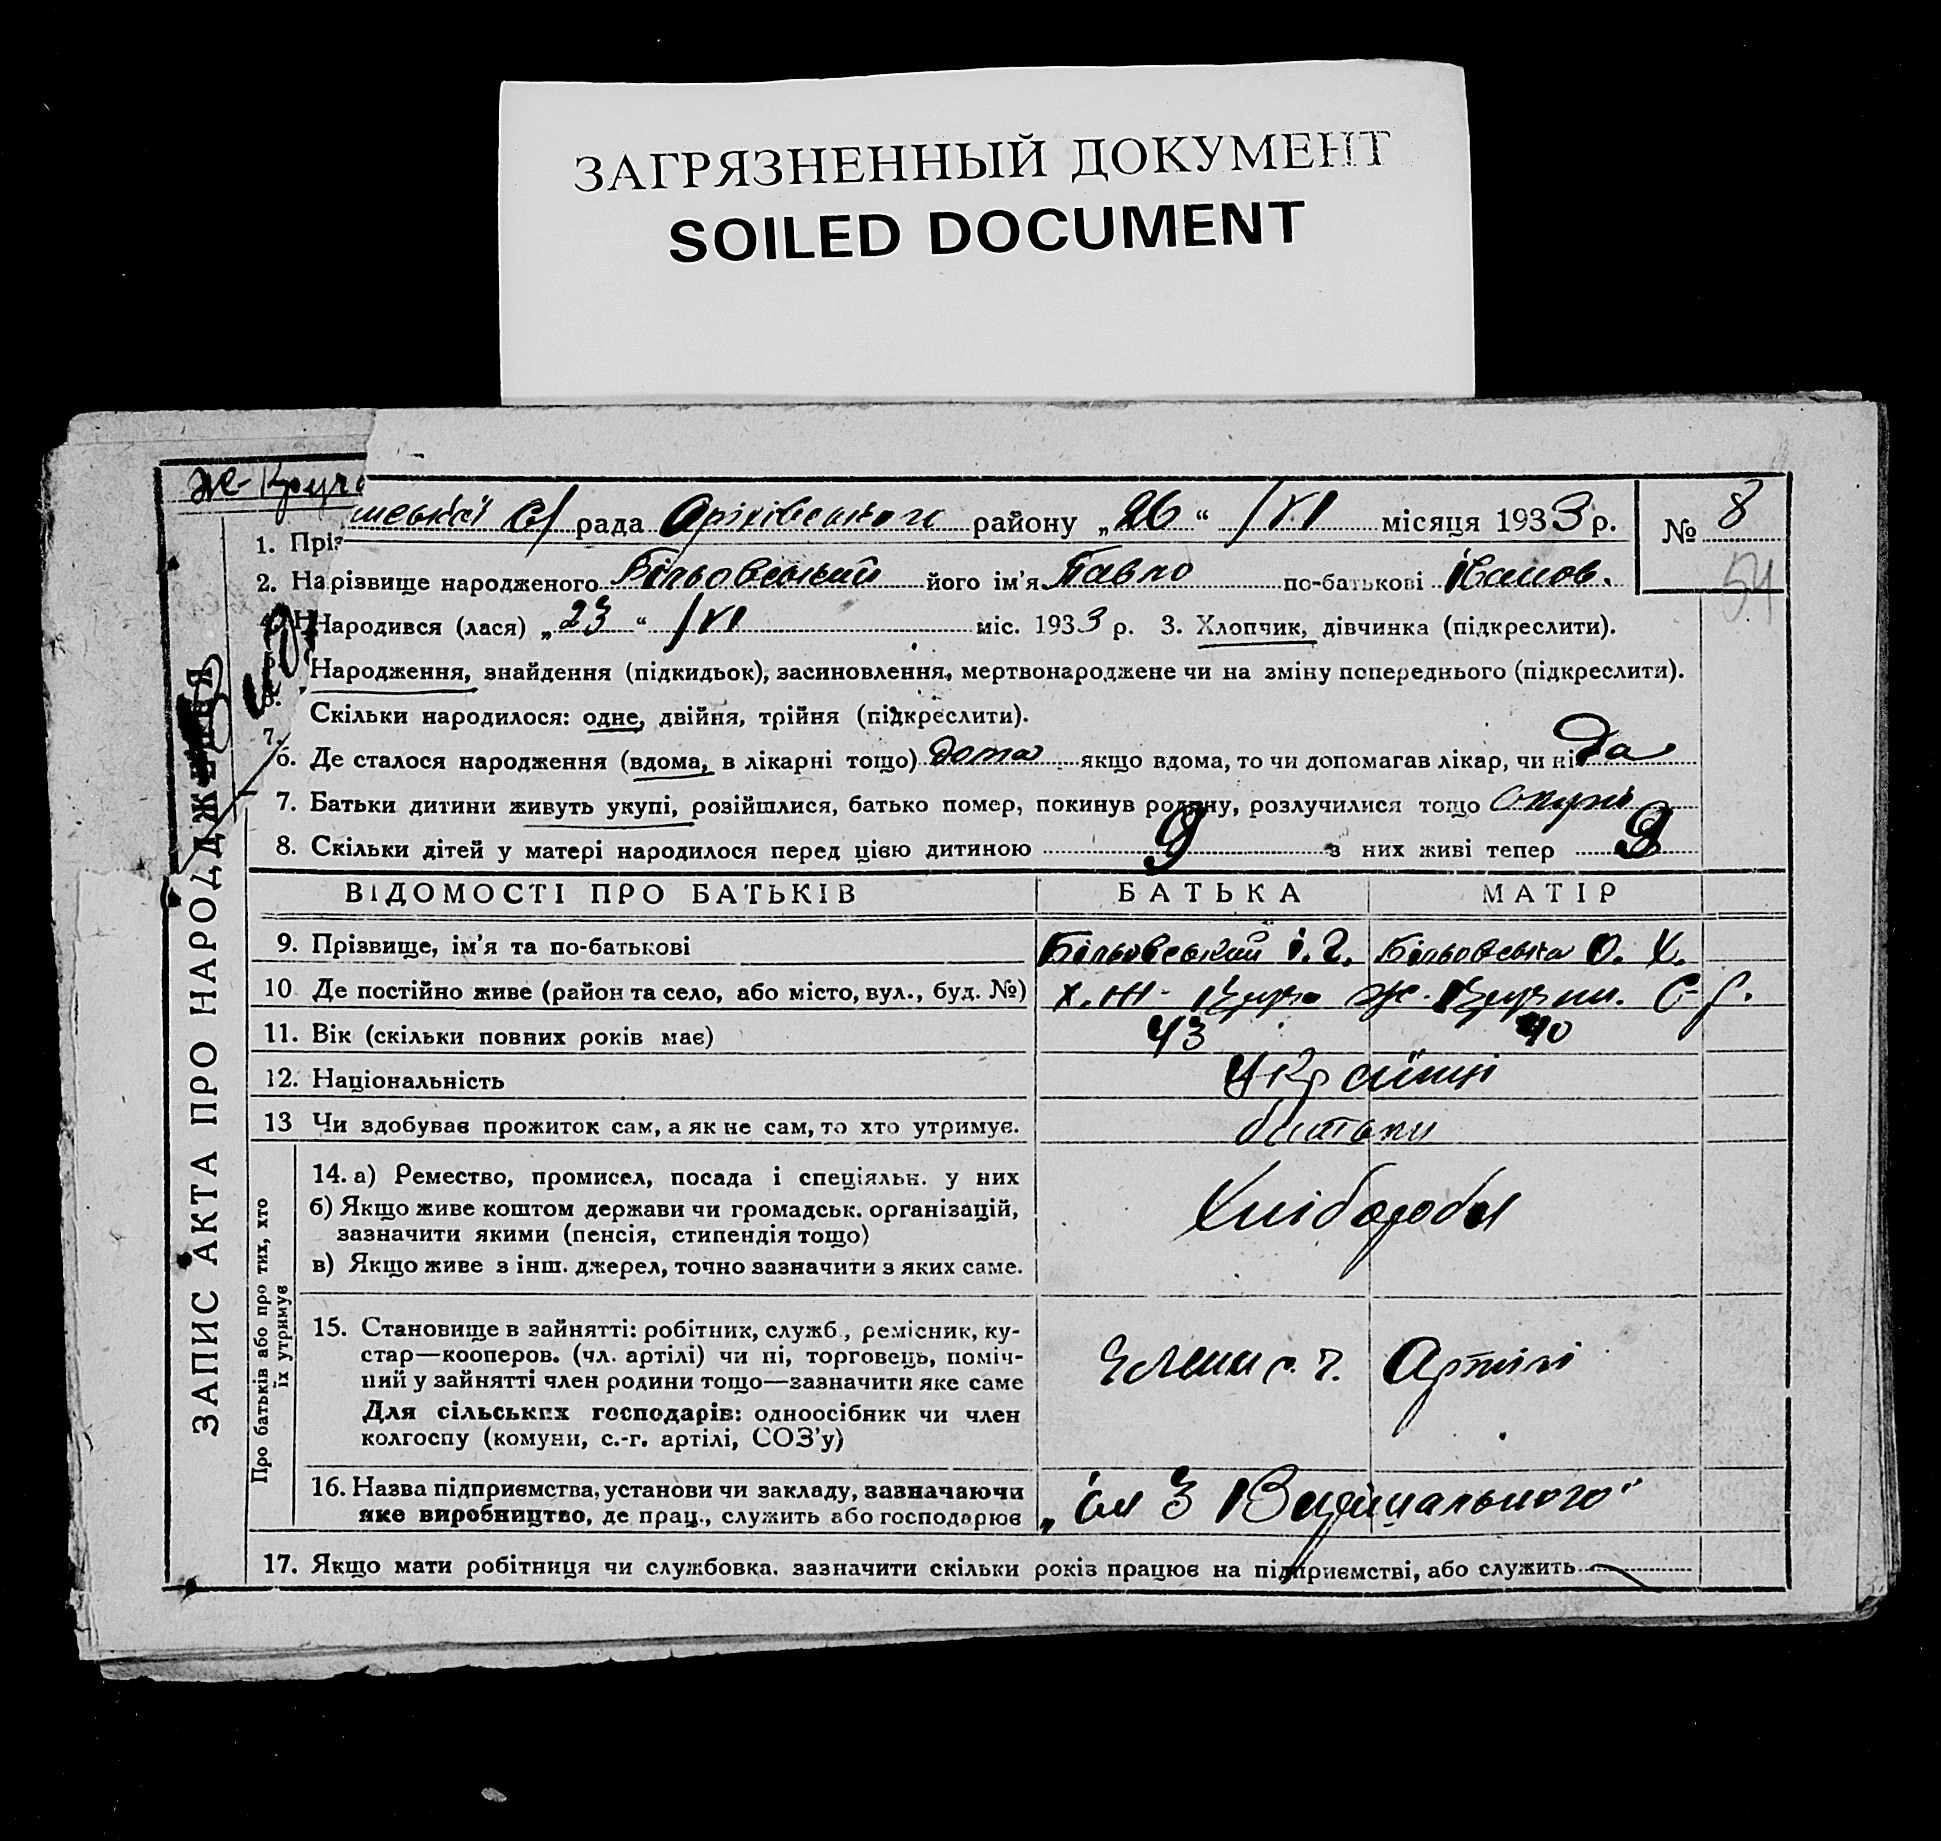 ЗАГРЯЗНЕННЫЙ ДОКУМЕНТ
SOILED DOCUMENT
ЗАПИС АКТА ПРО НАРОДЖЕННЯ
рада району „26“ місяця 1933 р. № 8
54
1. Прі
2. На різвище народженого Більовський його ім'я Павло по-батькові Іванов.
Народився (лася) „23“ /VI міс. 1933 р. 3. Хлопчик, дівчинка (підкреслити).
Народження, знайдення (підкидьок), засиновлення, мертвонароджене чи на зміну попереднього (підкреслити).
Скільки народилося: одне, двійня, трійня (підкреслити).
7.
6. Де сталося народження (вдома, в лікарні тощо) дома якщо вдома, то чи допомагав лікар, чи ні да
7. Батьки дитини живуть укупі, розійшлися, батько помер, покинув родину, розлучилися тощо
8. Скільки дітей у матері народилося перед цією дитиною 9 з них живі тепер
ВІДОМОСТІ ПРО БАТЬКІВ БАТЬКА МАТІР
9. Прізвище, ім'я та по-батькові Більовський І. Г. Більовська О. Х.
10 Де постійно живе (район та село, або місто, вул., буд. №)
11. Вік (скільки повних років має) 43 40
12. Національність Українці
13 Чи здобуває прожиток сам, а як не сам, то хто утримує. батьки
Про батьків або про тих, хто їх утримує
14. а) Ремество, промисел, посада і спеціяльн. у них
б) Якщо живе коштом держави чи громадськ. організацій,
зазначити якими (пенсія, стипендія тощо)
в) Якщо живе з інш. джерел, точно зазначити з яких саме.
Хлібороби
15. Становище в зайнятті: робітник, служб., ремісник, ку-
стар—кооперов. (чл. артілі) чи ні, торговець, поміч-
ний у зайнятті член родини тощо—зазначити яке саме
Для сільських господарів: одноосібник чи член
колгоспу (комуни, с.-г. артілі, СОЗ'у)
Члени с. г. Артілі
16. Назва підприємства, установи чи закладу, зазначаючи
яке виробництво, де прац., служить або господарює
17. Якщо мати робітниця чи службовка. зазначити скільки років працює на підприємстві, або служить